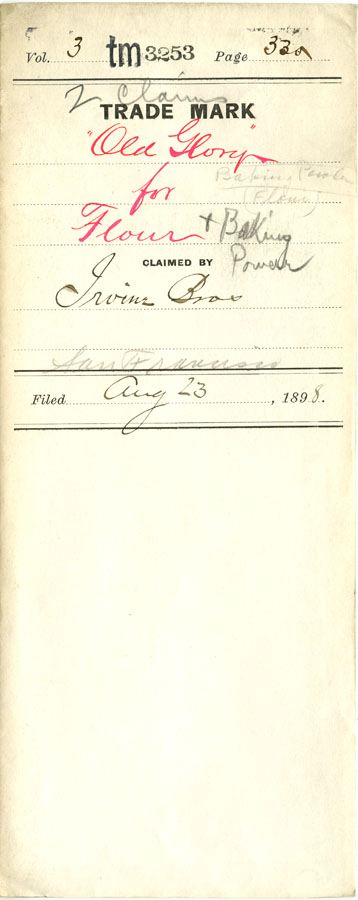 Vol. 3 tm 3253 Page
2 Claims
TRADE MARK
"Old Glory"
Baking Powder
for
(Flour)
Flour + Baking
Powder
CLAIMED BY
Irvine Bros
San Francisco
Filed Aug 23, 1898.